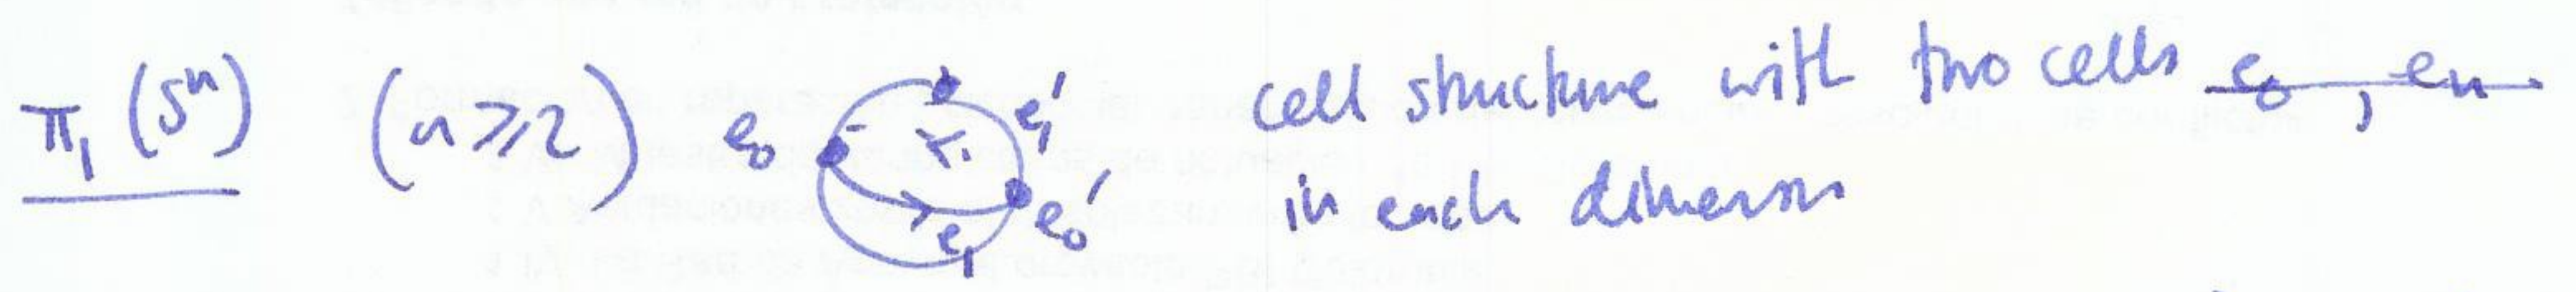 π₁(Sⁿ) (n≥2) e₀ e₁' e₀' e₁ cell structure with two cells e₀, eₙ
in each dimension